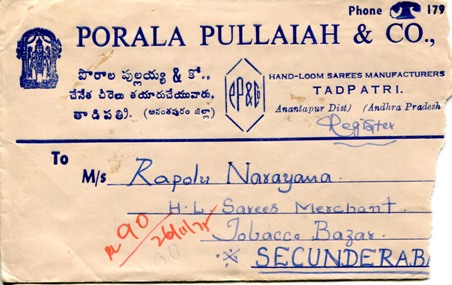 Phone 179
PORALA PULLAIAH & CO.,
పొరాల పుల్లయ్య & కో.,
చేనేత చీరెలు తయారుచేయువారు,
తాడిపత్రి. (అనంతపురం జిల్లా)
PP&Co
HAND-LOOM SAREES MANUFACTURERS
TADPATRI.
Anantapur Dist) (Andhra Pradesh
Register
To
M/s Rapolu Narayana.
H.L Sarees Merchant.
Tobacco Bazar.
SECUNDERAB
90
90